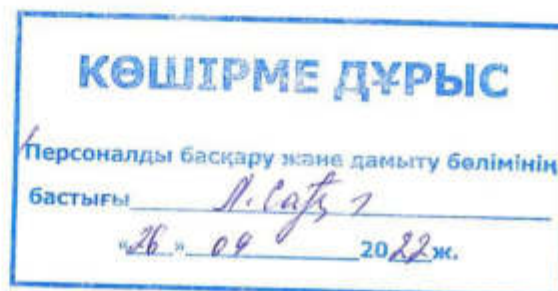 КӨШІРМЕ ДҰРЫС
Персоналды басқару және дамыту бөлімінің
бастығы
«26» 04 2022 ж.